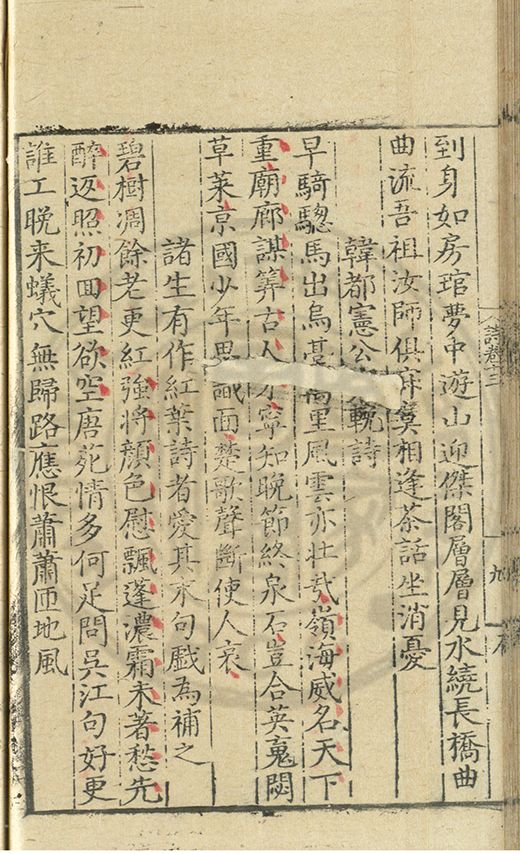 到身如房琯夢中遊山迎傑閣層層見水繞長橋曲
曲流吾祖汝師俱寂寞相逢茶話坐消憂
韓都憲公輓詩
早騎驄馬出烏臺萬里風雲亦壯哉嶺海威名天下
重廟廊謀筭古人才寧知晚節終泉石豈合英䰟閟
草萊京國少年思識面楚歌聲斷使人哀
諸生有作紅葉詩者愛其末句戲為補之
碧樹凋餘老更紅強將顔色慰飄蓬濃霜未著愁先
醉返照初囬望欲空唐苑情多何足問吳江句好更
誰工晚来蟻穴無歸路應恨蕭蕭匝地風
詩卷十三
九